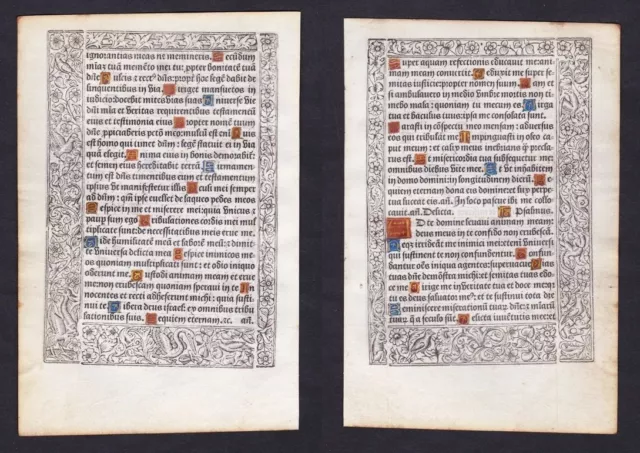 ignorantias meas ne memineris. Secūdum
mīaʒ tuā memēto mei tu: ꝓpter bonitatē tuā
dn̄e. Dulcis ⁊ rectꝰ dn̄s: ꝓpt hoc legē dabit de
linquentibus in via. Diriget mansuetos in
iudicio: docebit mites vias suas. Uniuerse vie
dn̄i mīa et veritas requirentibus testamentū
eius et testimonia eius. Propter nomē tuum
dn̄e ꝓpiciaberis pctō meo: multū est eni. Quis
est homo qui timet dn̄m: legē statuit ei in via
quā elegit. Anima eius in bonis demorabit:
et semen eius hereditabit terrā. Firmamen
tum est dn̄s timentibus eum et testamentum
ipsius vt manifestetur illis. Oculi mei semper
ad dn̄m: qm̄ ipse euellet de laqueo pedes meos
Respice in me et miserere mei: quia vnicus ⁊
pauꝑ sum ego. Tribulationes cordis mei mul
tiplicate sunt: de necessitatibus meis erue me.
Uide humilitatē meā et laborē meū: ⁊ dimit
te vniuersa delicta mea. Respice inimicos me
os quoniam multiplicati sunt: ⁊ odio iniquo
oderunt me. Custodi animam meam et erue
me: non erubescam quoniam speraui in te. In
nocentes et recti adheserunt michi: quia susti
nui te. Libera deus israel: ex omnibus tribu
lationibus suis. Requiem eternam. ⁊c. an̄.
Super aquam refectionis educauit me: ani
mam meam conuertit. Deduxit me super se
mitas iusticie: propter nomen suum. Nam et
si ambulauero in medio vmbre mortis non ti
mebo mala: quoniam tu mecum es. Uirga
tua et baculus tuus: ipsa me consolata sunt.
Parasti in cōspectu meo mensam: aduersus
eos qui tribulāt me. Impinguasti in oleo ca
put meum: et calix meus inebrians ꝗ̄ precla
rus est. Et misericordia tua subsequetur me:
omnibus diebus vite mee. Et vt inhabitem
in domo domini: in longitudinem dierū. Re
quiem eternam dona eis domine: et lux perpe
tua luceat eis. an̄. In loco pascue ibi me collo
cauit. an̄. Delicta. Psalmus.
Ad te domine leuaui animam meam
deus meus in te confido non erubescā.
Neqꝫ irrideāt me inimici mei: etenī vniuersi
qui sustinent te non confundentur. Confun
dantur oēs iniqua agentes: superuacue. Uias
tuas dn̄e demōstra michi: et semitas tuas edo
ce me. Dirige me in veritate tua et doce me: qꝛ
tu es deus saluator meꝰ: et te sustinui tota die
Reminiscere miserationū tuarꝝ dn̄e: et mīarū
tuarꝝ q̄ a seculo sūt. Delicta iuuētutis mee: et